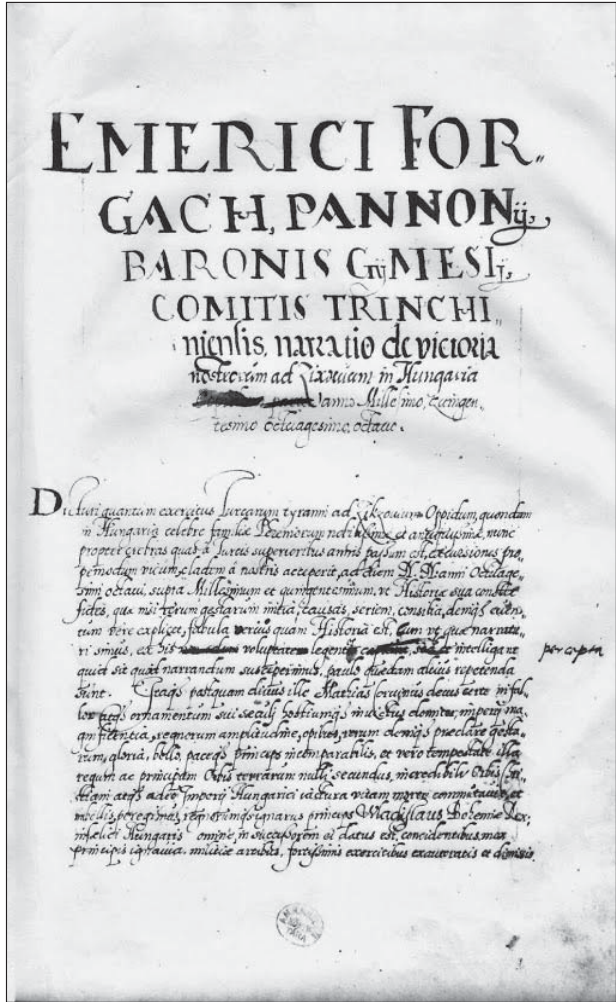 EMERICI FOR„
GACH, PANNONij,
BARONIS GijMESIj,
COMITIS TRINCHI„
niensis, narratio de victoria
nostrorum ad Zixouium in Hungaria
anno Millesimo, quingen„
tesimo octuagesimo, octauo.
Dicturi quantum exercitus Turcarum tyranni ad Zikzouium Oppidum, quondam
in Hungaria celebre familiæ Peremorum nobilissimæ et antiquissimæ, nunc
propter crebras quas à Turcis superioribus annis passum est, excursiones pro„
pemodum vicum, cladem à nostris acceperit, ad diem Anni Octuage„
simi octaui, supra Millesimum et quingentesimum, vt Historiæ sua constet
fides, quæ nisi rerum gestarum initia, causas, seriem, consilia, deniq3 euen„
tum vere explicet, fabula verius quam Historia est, cum vt quæ narratu„
ri sumus, ex his voluptatem legentes et intelligant
percepta
quid sit quod narrandum suscepimus, paulo quædam altius repetenda
sunt. Itaq3 postquam diuus ille Mathias coruinus decus certe in fal„
atq3 ornamentum sui sæculi, hostiumq3 inuictus domitor, imperij ma„
gnificentia, regnorum amplitudine, opibus, rerum deniq3 præclare gesta„
rum, gloria, bello, paceq3 princeps incomparabilis, et vero tempestate illa
regum ac principum Orbis terrarum nulli secundus, incredibili Orbis
atq3 adeo Imperij Hungarici iactura vitam morte commutauit, et
imbellis, peregrinus, regniq3 ignarus princeps Wladislaus Bohemiæ Rex,
infœlici Hungaris omine, in successorem ei datus est, concidentibus, mox
principis ignauia, militiæ artibus, fortissimis exercitibus exauctoratis et dimissis